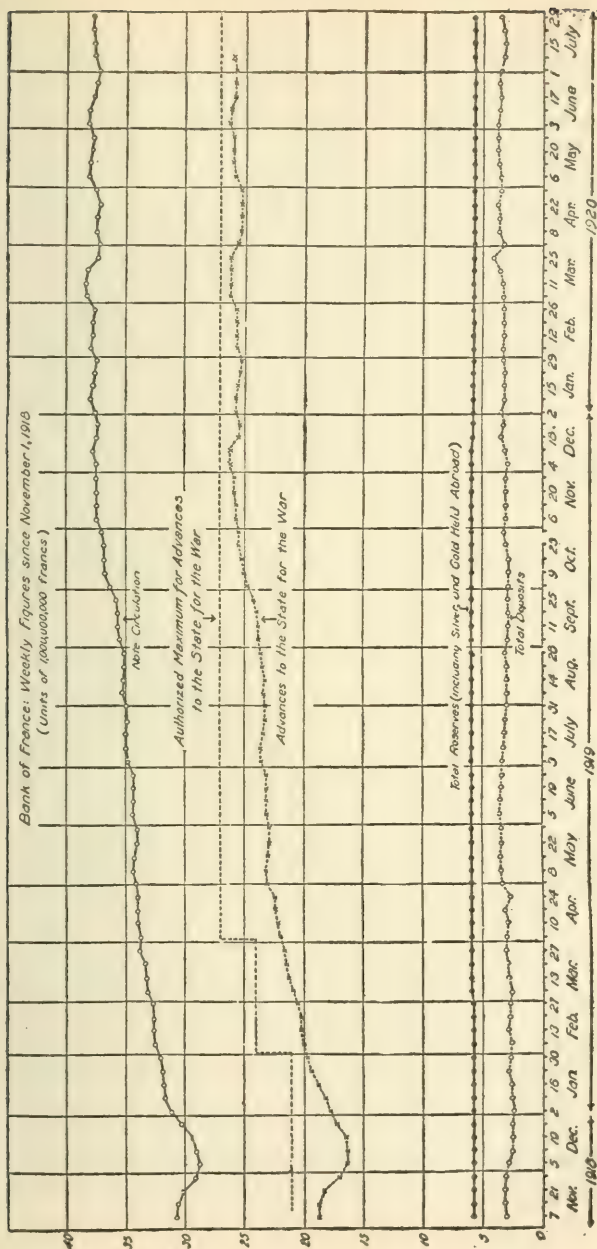 Bank of France: Weekly Figures since November 1, 1918
(Units of 1,000,000,000 Francs)
40
35
30
25
20
15
10
5
0
Note Circulation
Authorized Maximum for Advances
to the State for the War
Advances to the State for the War
Total Reserves (Including Silver, and Gold Held Abroad)
Total Deposits
7 21 5 19 2 16 30 13 27 13 27 10 24 8 22 5 19 3 17 31 14 28 11 25 9 23 6 20 4 18 2 15 29 12 26 11 25 8 22 6 20 3 17 1 15 29
Nov. Dec. Jan Feb. Mar. Apr. May June July Aug. Sept. Oct. Nov. Dec. Jan. Feb. Mar. Apr. May June July
1918 1919 1920